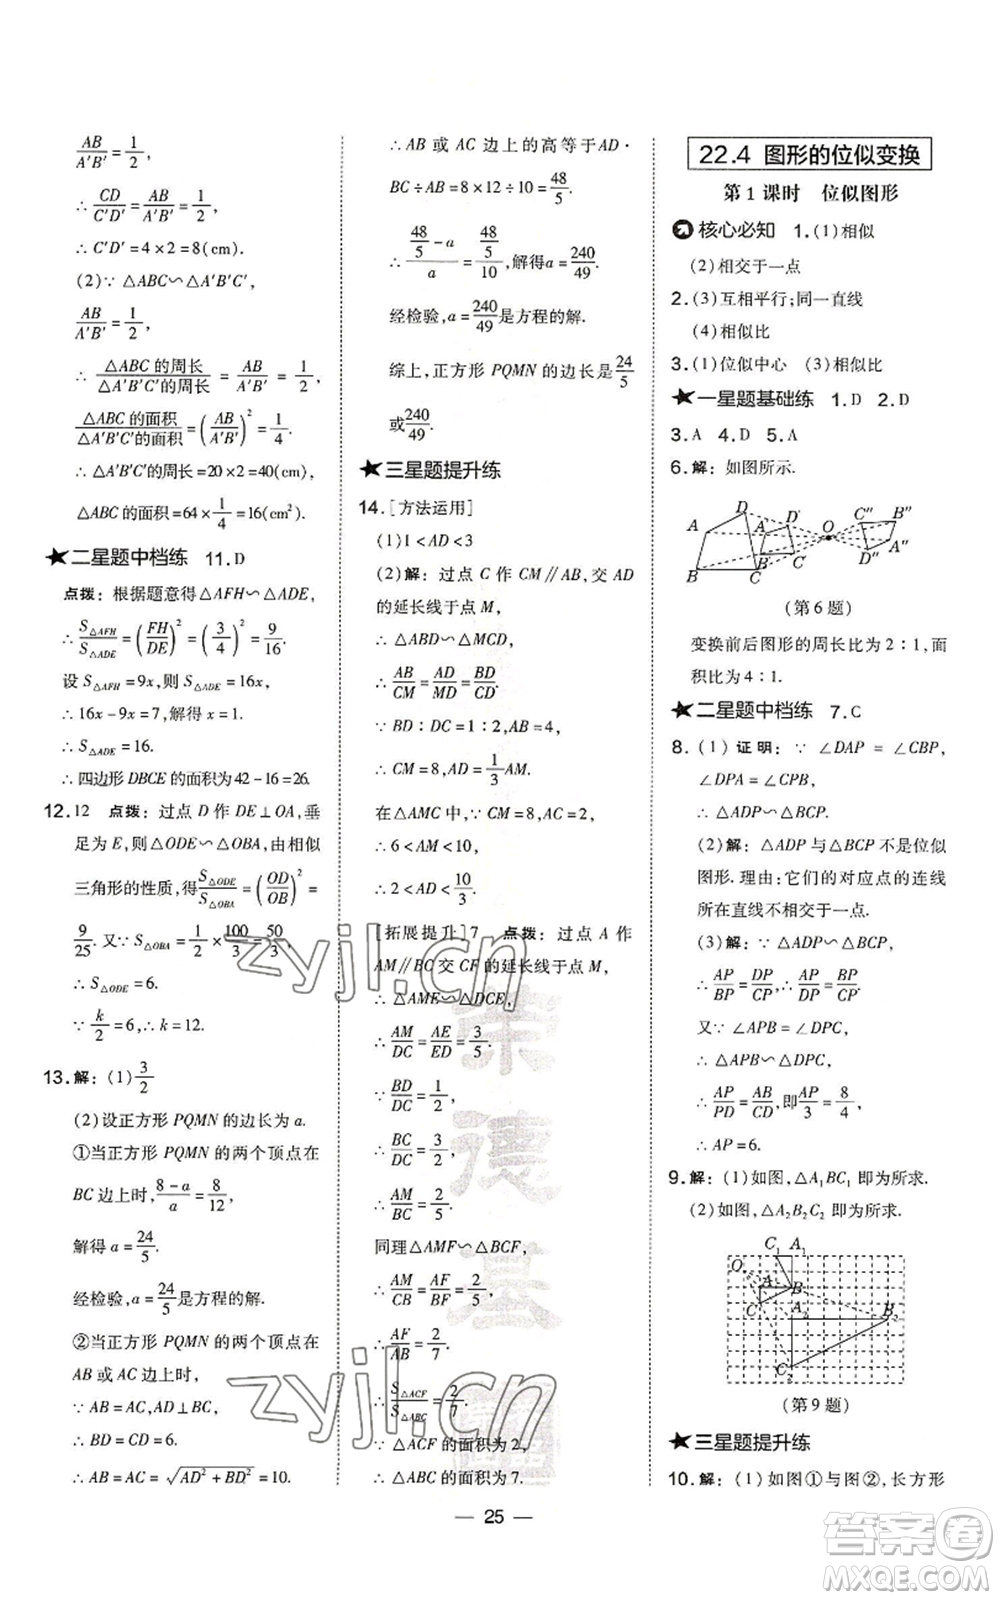 AB/A′B′=1/2,
∴ CD/C′D′=AB/A′B′=1/2.
∴ C′D′=4×2=8(cm).
(2)∵ △ABC∽△A′B′C′,
AB/A′B′=1/2,
∴ △ABC 的周长/△A′B′C′的周长=AB/A′B′=1/2,
△ABC 的面积/△A′B′C′的面积=(AB/A′B′)²=1/4.
∴ △A′B′C′的周长=20×2=40(cm),
△ABC 的面积=64×1/4=16(cm²).
★二星题中档练 11.D
点拨:根据题意得△AFH∽△ADE,
∴ S△AFH/S△ADE=(FH/DE)²=(3/4)²=9/16.
设 S△AFH=9x,则 S△ADE=16x,
∴ 16x-9x=7,解得 x=1.
∴ S△ADE=16.
∴ 四边形 DBCE 的面积为 42-16=26.
12.12 点拨:过点 D 作 DE⊥OA,垂
足为 E,则△ODE∽△OBA,由相似
三角形的性质,得S△ODE/S△OBA=(OD/OB)²=
9/25.又∵ S△OBA=1/2×100/3=50/3,
∴ S△ODE=6.
∵ k/2=6,∴ k=12.
13.解:(1)3/2
(2)设正方形 PQMN 的边长为 a.
①当正方形 PQMN 的两个顶点在
BC 边上时,(8-a)/a=8/12,
解得 a=24/5.
经检验,a=24/5是方程的解.
②当正方形 PQMN 的两个顶点在
AB 或 AC 边上时,
∵ AB=AC,AD⊥BC,
∴ BD=CD=6.
∴ AB=AC=√(AD²+BD²)=10.
∴ AB 或 AC 边上的高等于 AD·
BC÷AB=8×12÷10=48/5.
∴ (48/5-a)/a=(48/5)/10,解得 a=240/49.
经检验,a=240/49是方程的解.
综上,正方形 PQMN 的边长是24/5
或240/49.
★三星题提升练
14.[方法运用]
(1)1<AD<3
(2)解:过点 C 作 CM∥AB,交 AD
的延长线于点 M,
∴ △ABD∽△MCD,
∴ AB/CM=AD/MD=BD/CD.
∵ BD∶DC=1∶2,AB=4,
∴ CM=8,AD=1/3AM.
在△AMC 中,∵ CM=8,AC=2,
∴ 6<AM<10,
∴ 2<AD<10/3.
[拓展提升]7 点拨:过点 A 作
AM∥BC 交 CF 的延长线于点 M,
∴ △AME∽△DCE,
∴ AM/DC=AE/ED=3/5.
∵ BD/DC=1/2,
∴ BC/DC=3/2,
∴ AM/BC=2/5.
同理△AMF∽△BCF,
∴ AM/CB=AF/BF=2/5,
∴ AF/AB=2/7.
∴ S△ACF/S△ABC=2/7.
∵ △ACF 的面积为 2,
∴ △ABC 的面积为 7.
22.4 图形的位似变换
第 1 课时 位似图形
核心必知 1.(1)相似
(2)相交于一点
2.(3)互相平行;同一直线
(4)相似比
3.(1)位似中心 (3)相似比
★一星题基础练 1.D 2.D
3.A 4.D 5.A
6.解:如图所示.
A D A′ D′ O C″ B″
B C B′ C′ D″ A″
(第 6 题)
变换前后图形的周长比为 2∶1,面
积比为 4∶1.
★二星题中档练 7.C
8.(1)证明:∵ ∠DAP=∠CBP,
∠DPA=∠CPB,
∴ △ADP∽△BCP.
(2)解:△ADP 与△BCP 不是位似
图形.理由:它们的对应点的连线
所在直线不相交于一点.
(3)解:∵ △ADP∽△BCP,
∴ AP/BP=DP/CP,∴ AP/DP=BP/CP.
又∵ ∠APB=∠DPC,
∴ △APB∽△DPC,
∴ AP/PD=AB/CD,即AP/3=8/4,
∴ AP=6.
9.解:(1)如图,△A₁BC₁ 即为所求.
(2)如图,△A₂B₂C₂ 即为所求.
C₁ A₁
O A B
C A₂ B₂
C₂
(第 9 题)
★三星题提升练
10.解:(1)如图①与图②,长方形
— 25 —
zyjl.cn
zyjl.cn
荣德基
答案卷
MXQE.COM